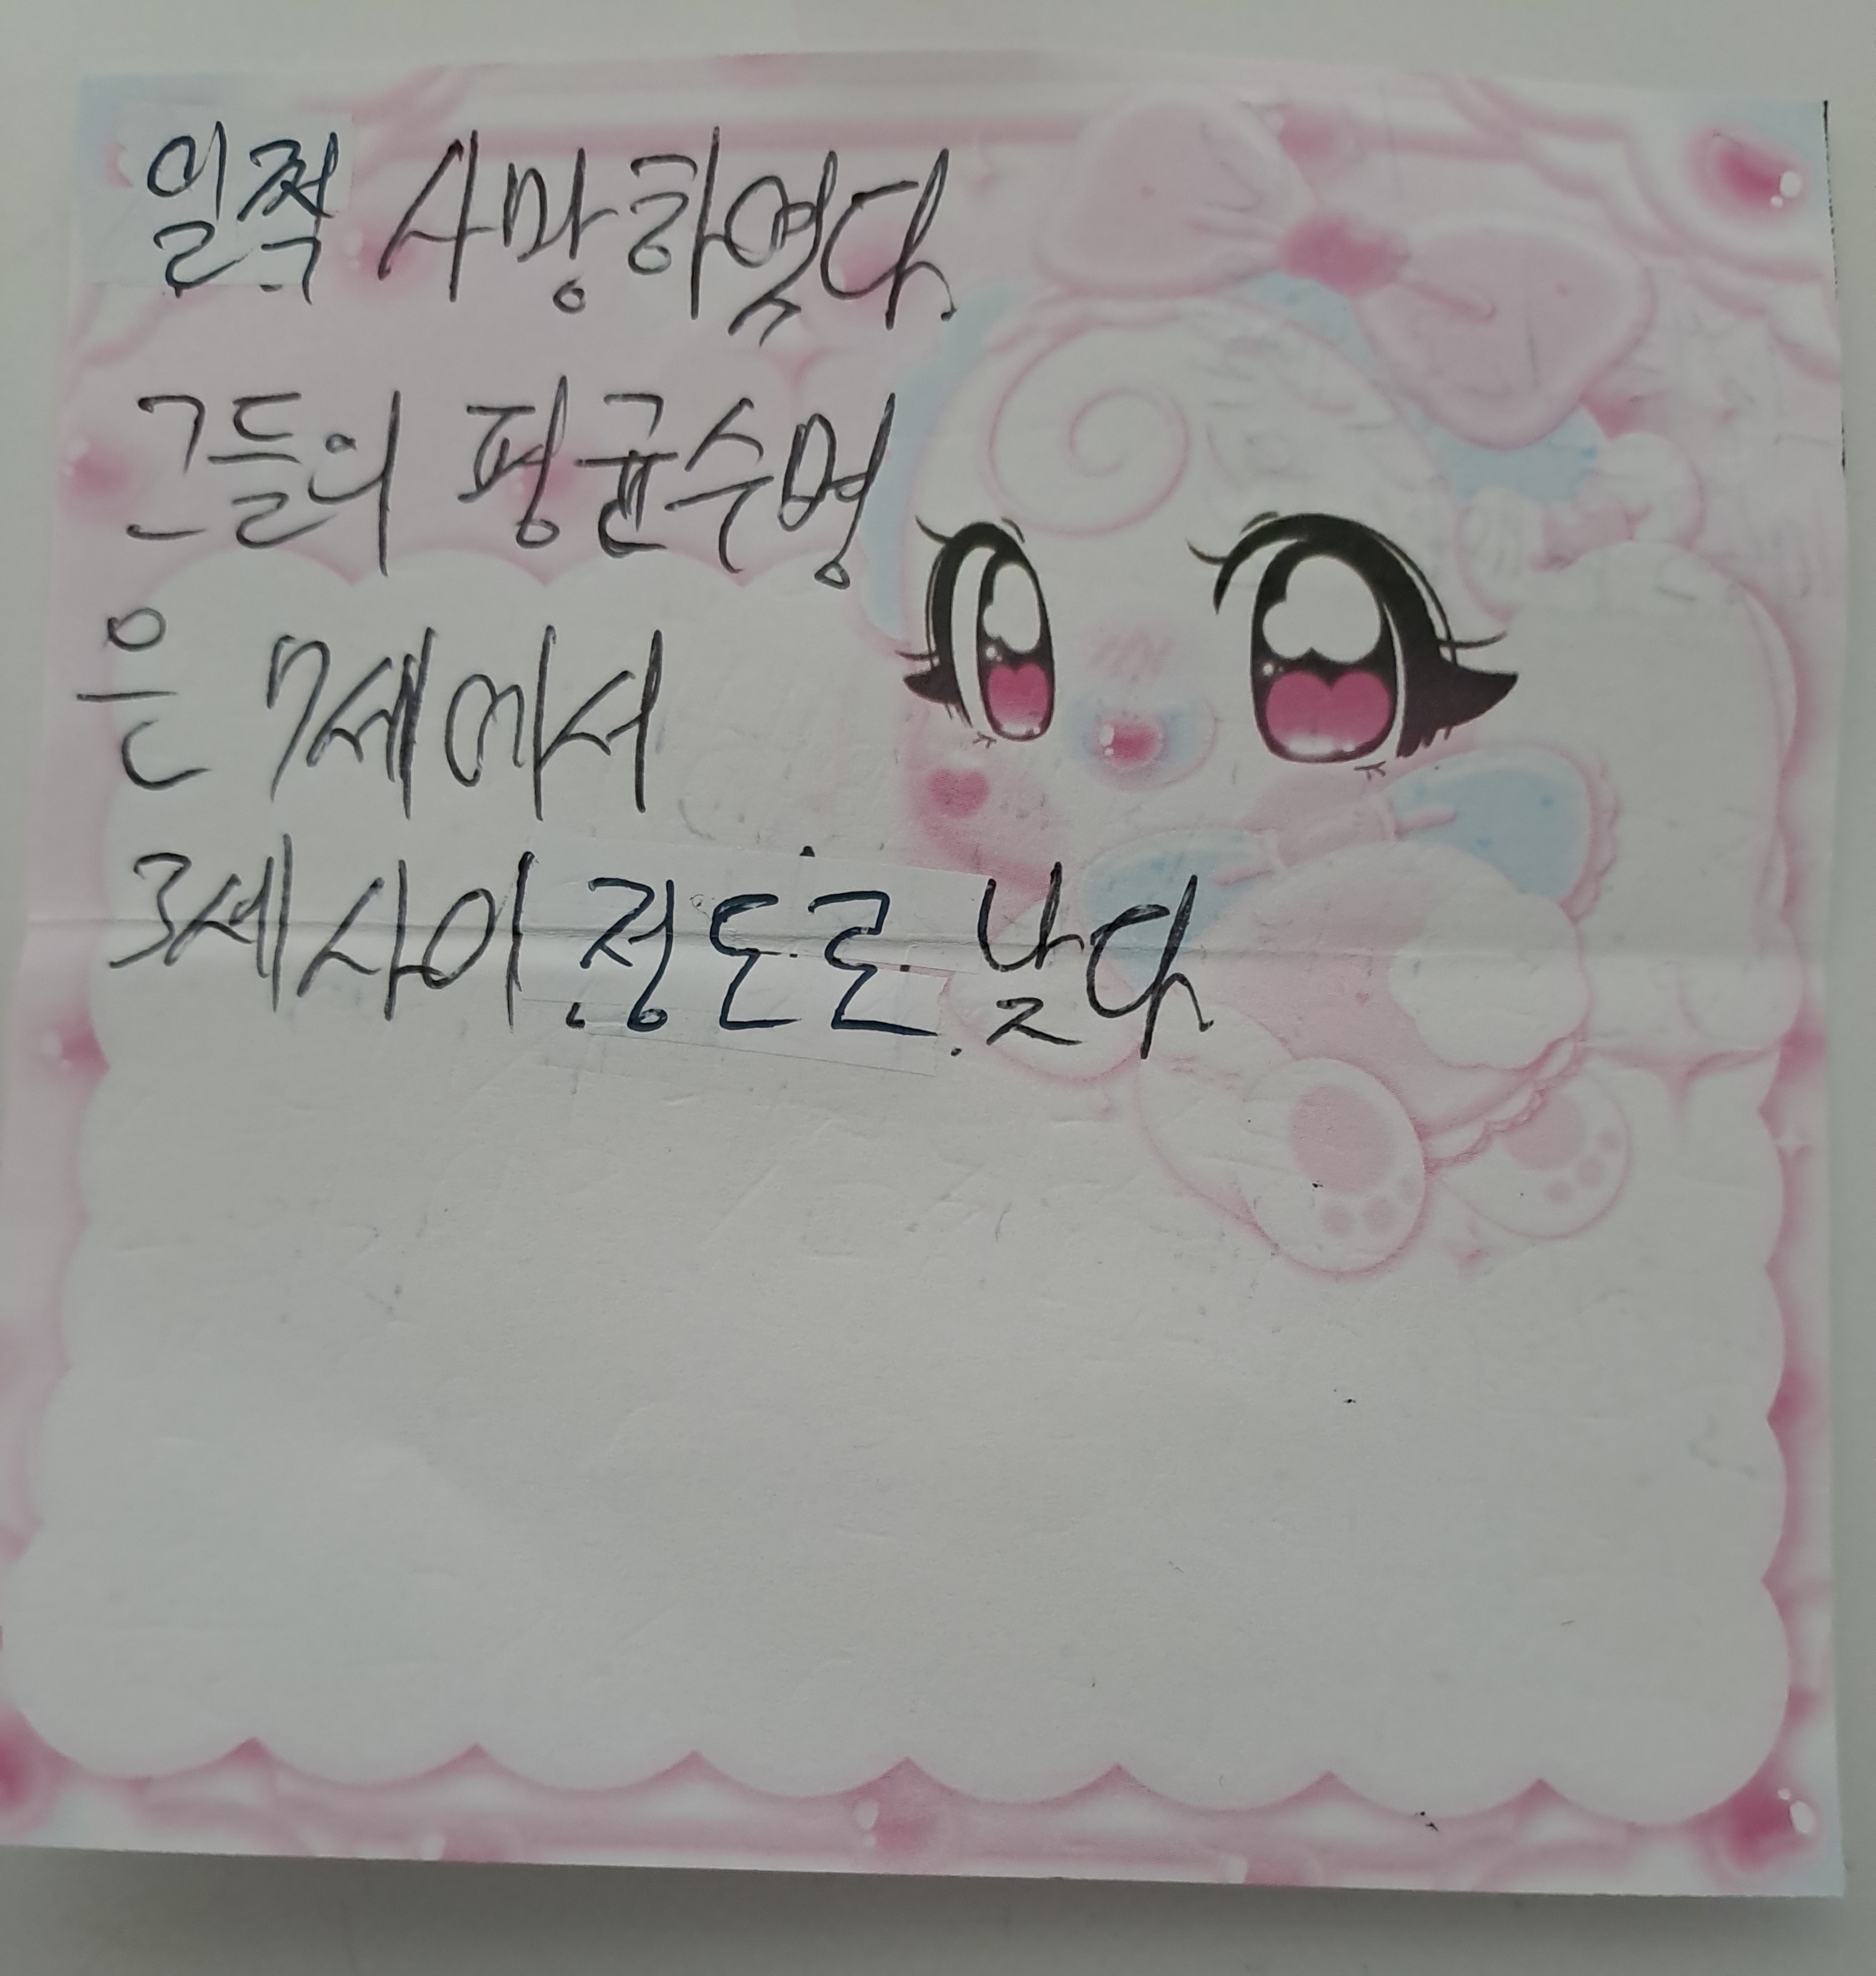 일찍 사망하였다.
그들의 평균수명
은 7세에서
3세사이 정도로 낮다